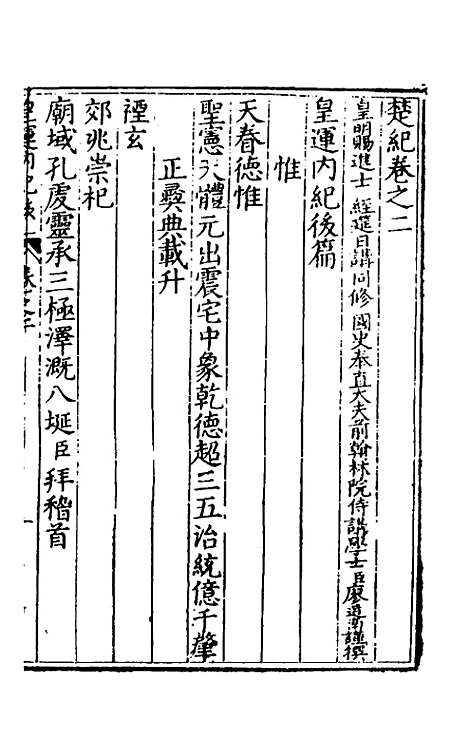 楚紀卷之二
皇明賜進士 經筵日講同修 國史奉直大夫前翰林院侍講學士臣廖道南謹撰
皇運內紀後篇
惟
天眷德惟
聖憲天體元出震宅中象乾德超三五治統億千肇
正彛典載升
禋玄
郊兆崇祀
廟域孔虔靈承三極澤溉八埏臣拜稽首